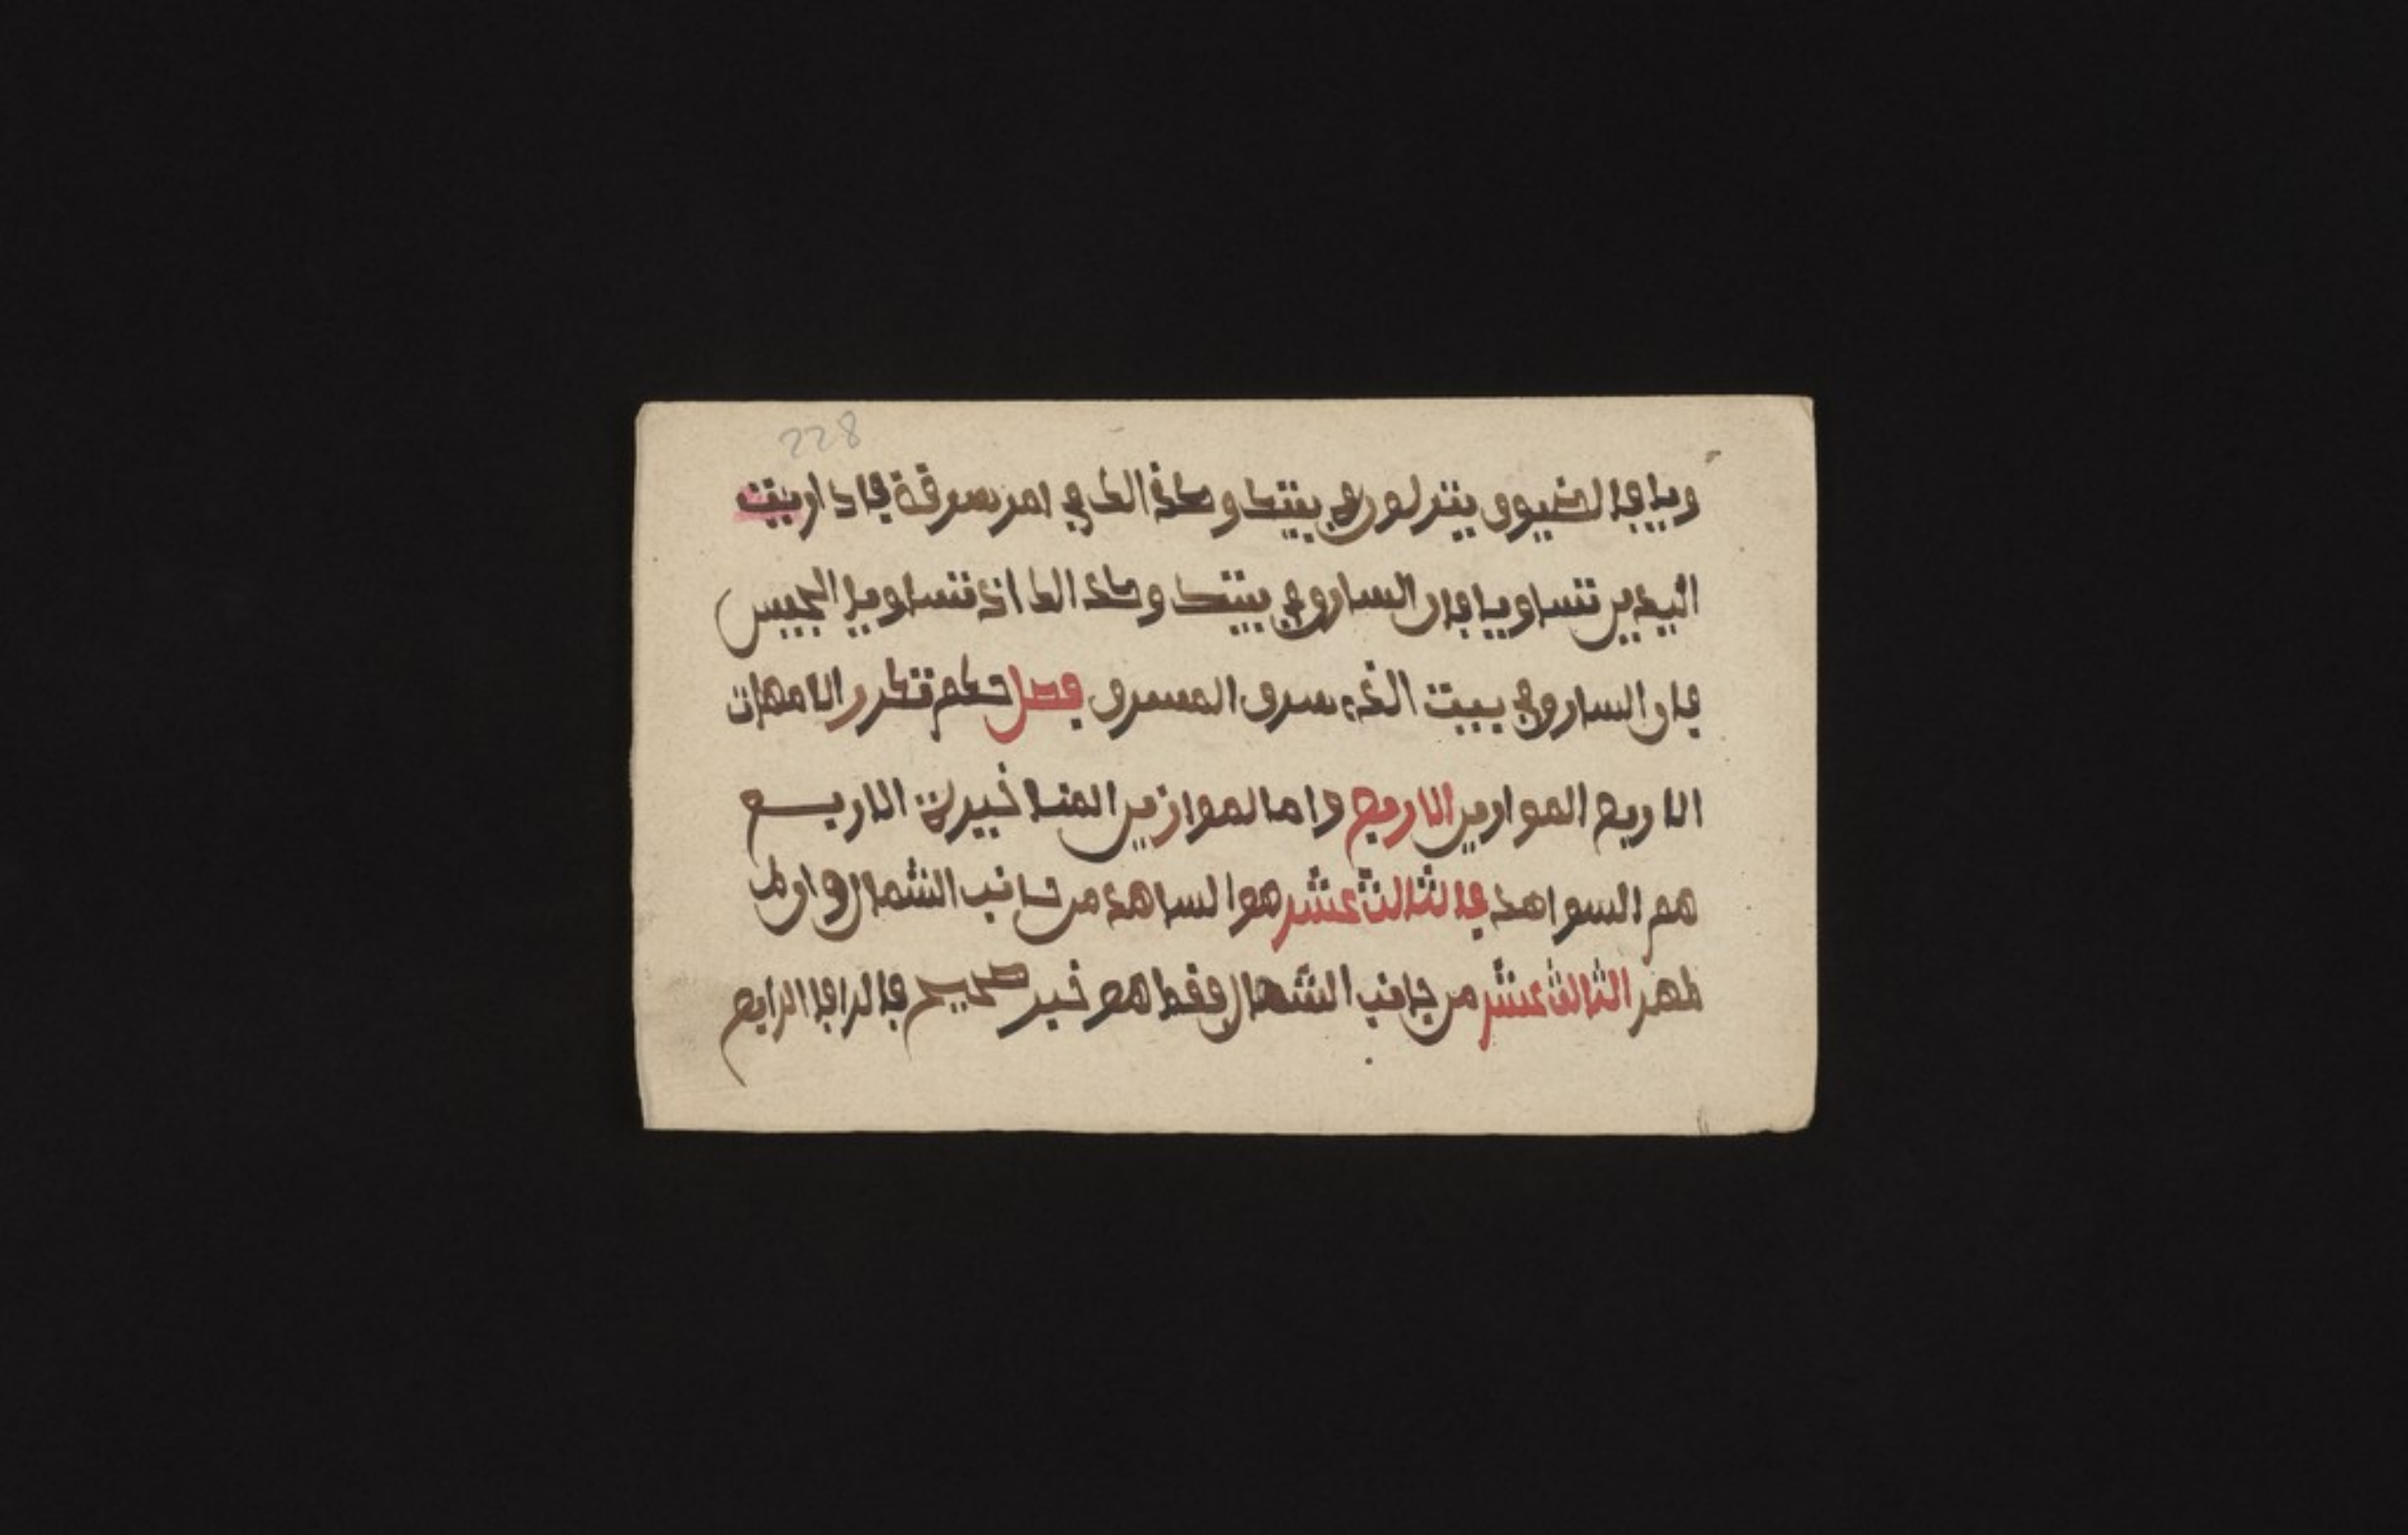 228
ويا فا الضيوف ينزلون في بيتك وكذالك في امر سرقة فاذا ريت
اليدين تساويا فان السارو في بيتك وكذالك اذ تساويا الجيس
فان السارو في بيت الذي سرق المسرق فصل حكم تكرر الامهات
الاربع الموازين الاربع واما الموازين المتاخيرة الاربع
هم السواهد فالثالث عشر هو الساهد من جانب الشمال وان لم
لمهر الثالث عشر من جانب الشمال فقط هو خبر صحيح فالرافا الرابع